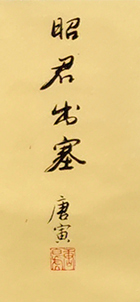 昭君出塞
唐寅